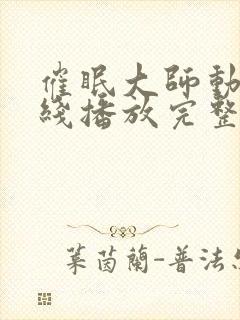 催眠大師動
綫播放完整
葉茵蘭-普法